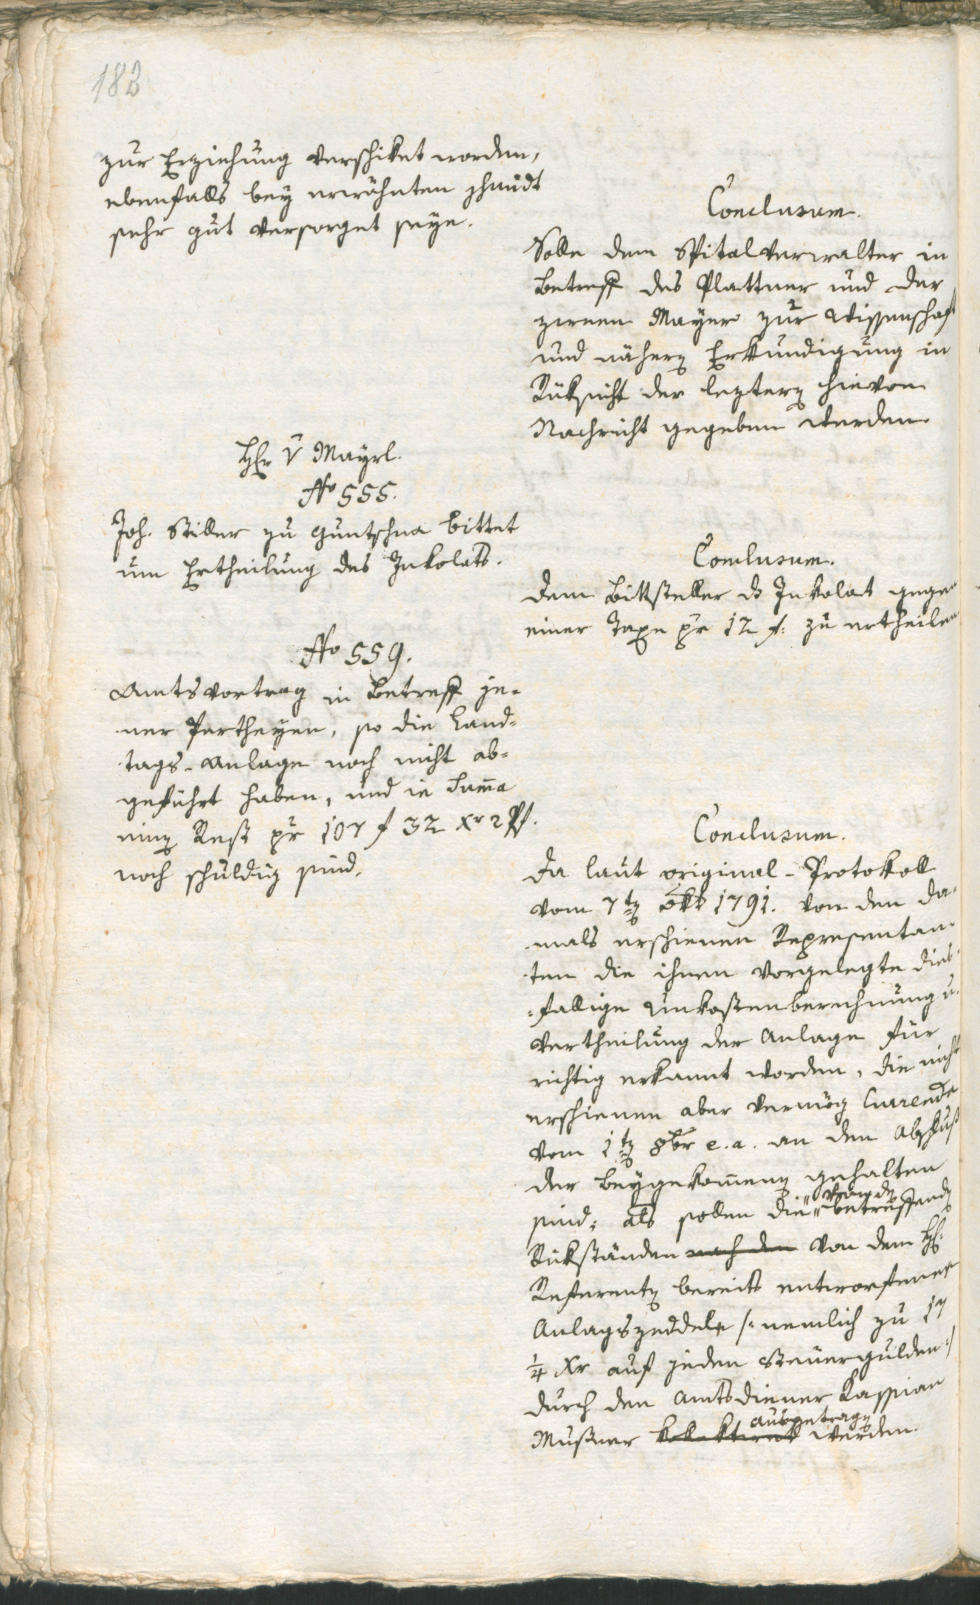 182
zur Erziehung verschiket worden,
ebenfalls bey erwähnten
sehr gut versorget seye.
Conclusum.
Solle dem Spitalverwalter in
Betreff des Plattner und der
zween Mayer zur Wissenschaft
und nähern Erkundigung in
Rüksicht der leztern hievon
Nachricht gegeben werden.
Hr v Mayrl.
No 555.
Joh. Stiller zu Guntschna bittet
um Ertheilung des Inkolats.
Conclusum.
Dem Bittsteller ds Inkolat gegen
einer Taxe pr 12 f: zu ertheilen
No 559.
Amtsvortrag in Betreff je-
ner Partheyen, so die Land-
tags-Anlage noch nicht ab-
geführt haben, und in Suma
einen Rest pr 107 f 32 xr 2
noch schuldig sind.
Conclusum.
Da laut original-Protokoll
vom 7ten 1791. von den da-
mals erschienen Representan-
ten die ihnen vorgelegte dies-
fallige Unkostenberechnung u.
Vertheilung der Anlage für
richtig erkannt worden, die nicht
erschienen aber vermög Currende
vom 1ten 8br e.a. an den Abschluß
der Beygekomenen gehalten
sind; als sollen die betreffenden
Rükständen nach den von dem Hr.
Referenten bereits entworfener
Anlagszeddele /: nemlich zu 17
1/4 Xr auf jeden Steuergulden :/
durch den Amtsdiener Kassian
ausgetragen
Mußner werden.